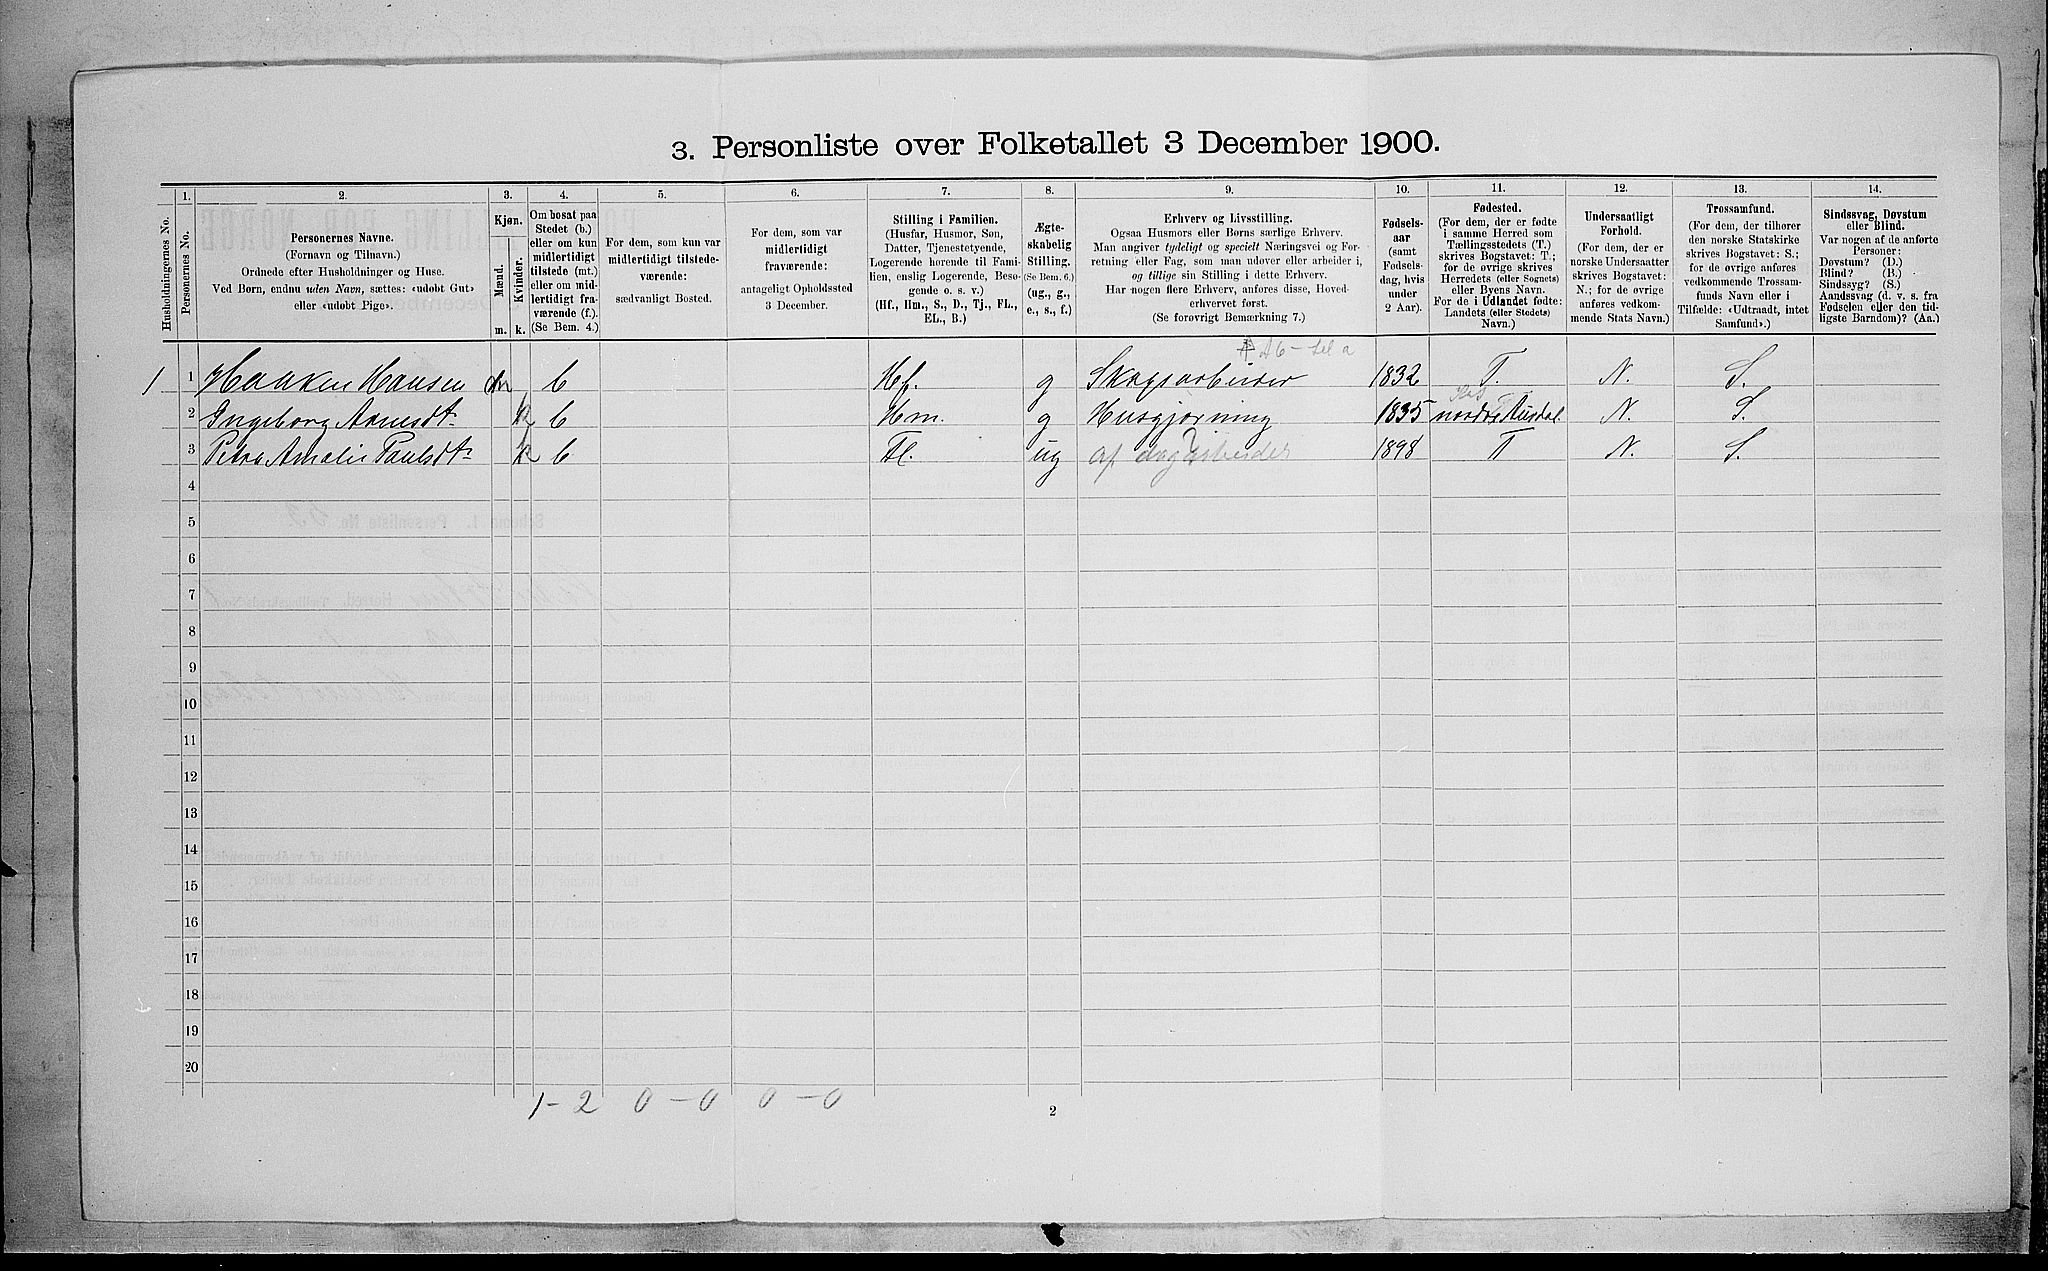 3. Personliste over Folketallet 3 December 1900.
Husholdningernes No.
1.
Personernes No.
2.
Personernes Navne.
(Fornavn og Tilnavn.)
Ordnede efter Husholdninger og Huse.
Ved Børn, endnu uden Navn, sættes: «udøbt Gut»
eller «udøbt Pige».
3.
Kjøn.
Mænd.
Kvinder.
m.
k.
4.
Om bosat paa
Stedet (b.)
eller om kun
midlertidigt
tilstede (mt.)
eller om mid-
lertidigt fra-
værende (f.).
(Se Bem. 4.)
5.
For dem, som kun var
midlertidigt tilstede-
værende:
sædvanligt Bosted.
6.
For dem, som var
midlertidigt
fraværende:
antageligt Opholdssted
3 December.
7.
Stilling i Familien.
(Husfar, Husmor, Søn,
Datter, Tjenestetyende,
Logerende hørende til Fami-
lien, enslig Logerende, Besø-
gende o. s. v.)
(Hf., Hm., S., D., Tj., FL.,
EL., B.)
8.
Ægte-
skabelig
Stilling.
(Se Bem. 6.)
(ug., g.,
e., s., f.)
9.
Erhverv og Livsstilling.
Ogsaa Husmors eller Børns særlige Erhverv.
Man angiver tydeligt og specielt Næringsvei og For-
retning eller Fag, som man udøver eller arbeider i,
og tillige sin Stilling i dette Erhverv.
Har nogen flere Erhverv, anføres disse, Hoved-
erhvervet først.
(Se forøvrigt Bemærkning 7.)
10.
Fødsels-
aar
(samt
Fødsels-
dag, hvis
under
2 Aar).
11.
Fødested.
(For dem, der er fødte
i samme Herred som
Tællingsstedets (T.)
skrives Bogstavet: T.;
for de øvrige skrives
Herredets (eller Sognets)
eller Byens Navn.
For de i Udlandet fødte:
Landets (eller Stedets)
Navn.)
12.
Undersaatligt
Forhold.
(For dem, der er
norske Undersaatter
skrives Bogstavet:
N.; for de øvrige
anføres vedkom-
mende Stats Navn.)
13.
Trossamfund.
(For dem, der tilhører
den norske Statskirke
skrives Bogstavet: S.;
for de øvrige anføres
vedkommende Trossam-
funds Navn eller i
Tilfælde: «Udtraadt, intet
Samfund».)
14.
Sindssvag, Døvstum
eller Blind.
Var nogen af de anførte
Personer:
Døvstum? (D.)
Blind? (B.)
Sindssyg? (S.)
Aandssvag (d. v. s. fra
Fødselen eller den tid-
ligste Barndom)? (Aa.)
1 1 Haaken Hansen m b Hf. g Skogsarbeider 1832 T. N. S.
2 Ingeborg Arnesdtr k b Hm. g Husgjørning 1835 nordre Ausdal N. S.
3 Petra Amalie Paulsdtr k b Fl. ug af dagarbeider 1898 T N. S.
4
5
6
7
8
9
10
11
12
13
14
15
16
17
18
19
20
1-2 0-0 0-0
2